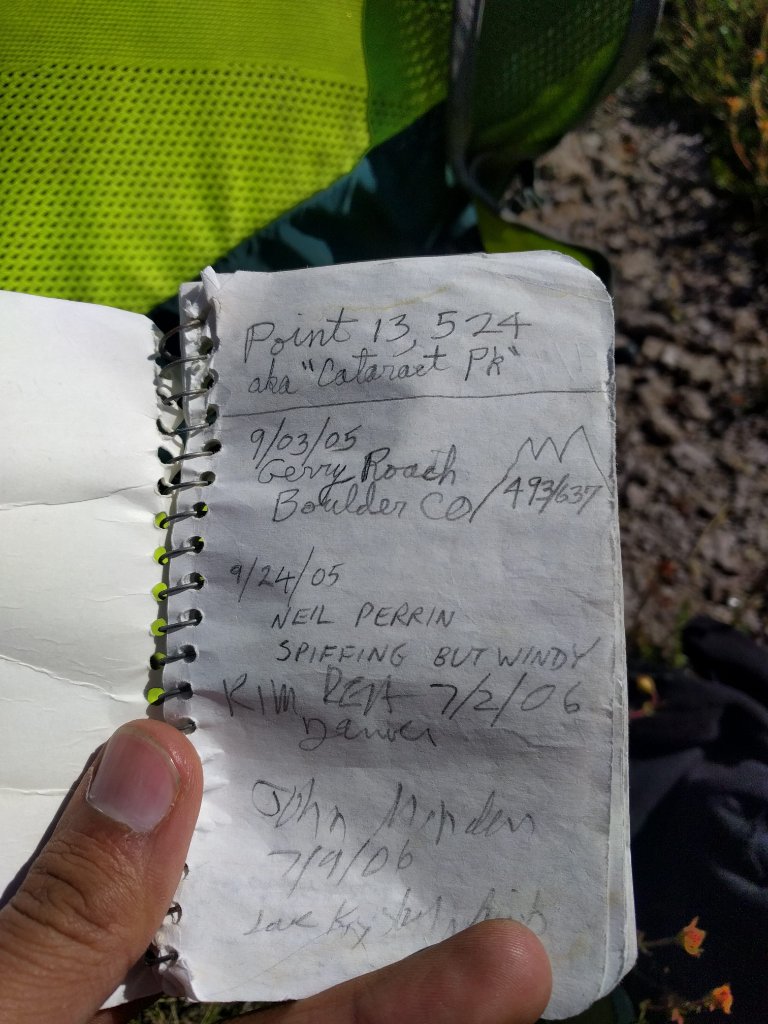 Point 13,524
aka "Cataract Pk"
9/03/05
Gerry Roach
Boulder CO / 493/637
9/24/05
NEIL PERRIN
SPIFFING BUT WINDY
KIM 7/2/06
Denver
John
7/9/06